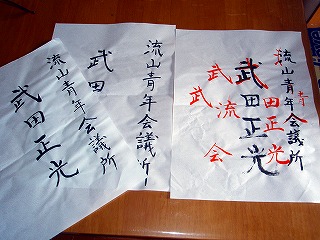 流山青年会議所
武田正光
流山青年会議所
武田
流山青年会議所
武田正光
青
田光
武流
武会